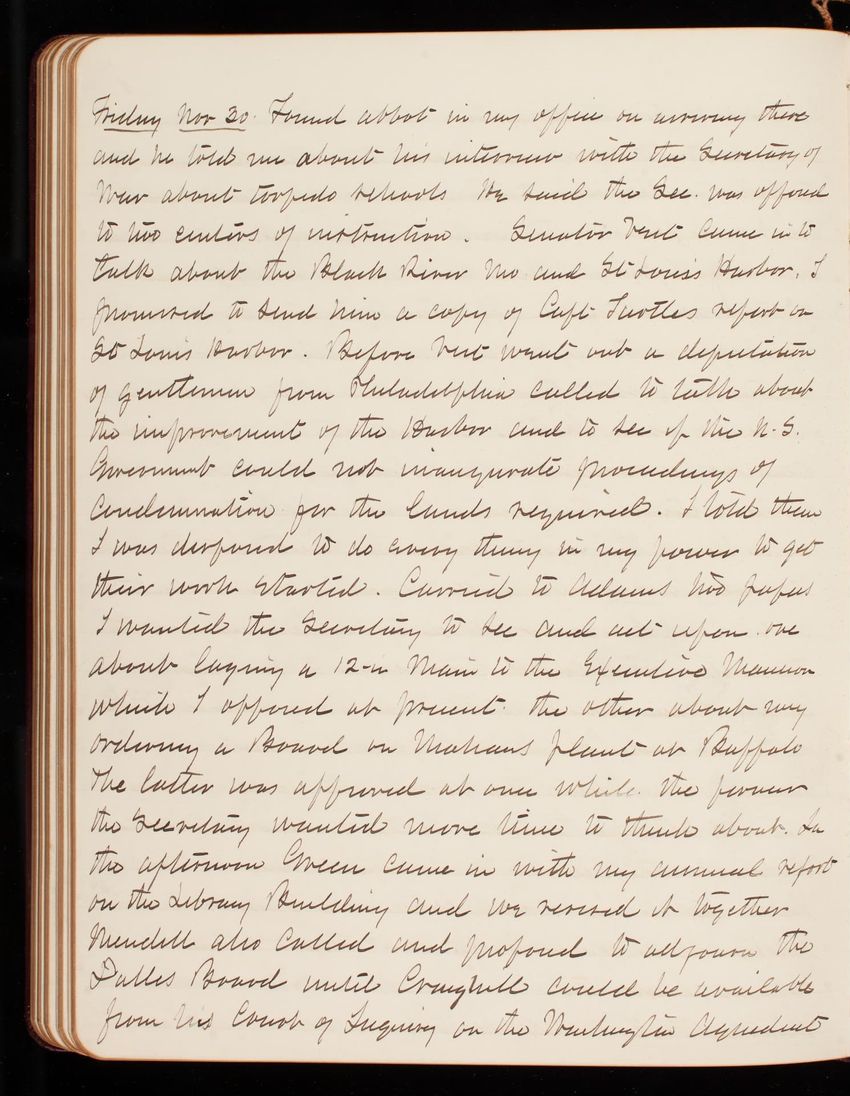 Friday Nov 30. Found Abbot in my office on arriving there
and he told me about his interview with the Secretary of
War about torpedo schools He said the Sec. was opposed
to two centers of instruction. Senator Vest came in to
talk about the Black River Mo and St Louis Harbor. I
promised to send him a copy of Capt Suttles report on
St Louis Harbor. Before Vest went out a deputation
of gentlemen from Philadelphia called to talk about
the improvement of the Harbor and to see if the U.S.
Government could not inaugurate proceedings of
Condemnation for the lands required. I told them
I was disposed to do every thing in my power to get
their work started. Carried to Adams two papers
I wanted the Secretary to see and act upon. one
about laying a 12-in Main to the Executive Mansion
which I opposed at present. the other about my
ordering a Board on Mahans plant at Buffalo
The latter was approved at once while the former
the Secretary wanted more time to think about. In
the afternoon Green came in with my annual report
on the Library Building and we revised it together
Mendell also called and proposed to adjourn the
Dalles Board until Craighill could be available
from his Court of Inquiry on the Washington Aqueduct